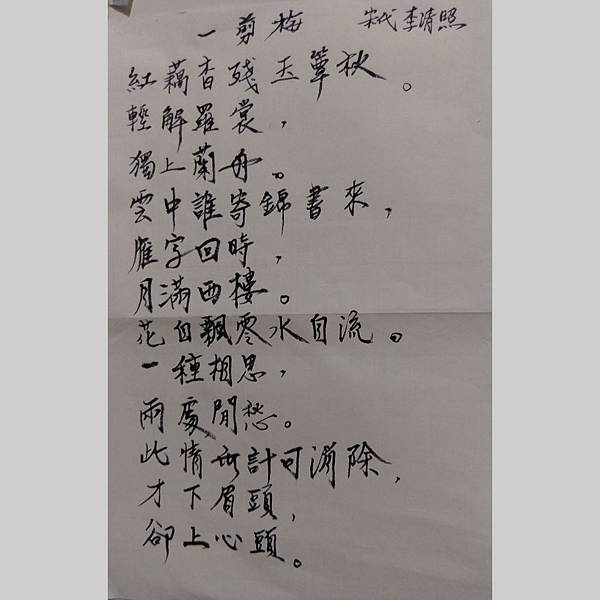 一剪梅 宋代李清照
紅藕香殘玉簟秋。
輕解羅裳，
獨上蘭舟。
雲中誰寄錦書來，
雁字回時，
月滿西樓。
花自飄零水自流。
一種相思，
兩處閒愁。
此情無計可消除，
才下眉頭，
卻上心頭。